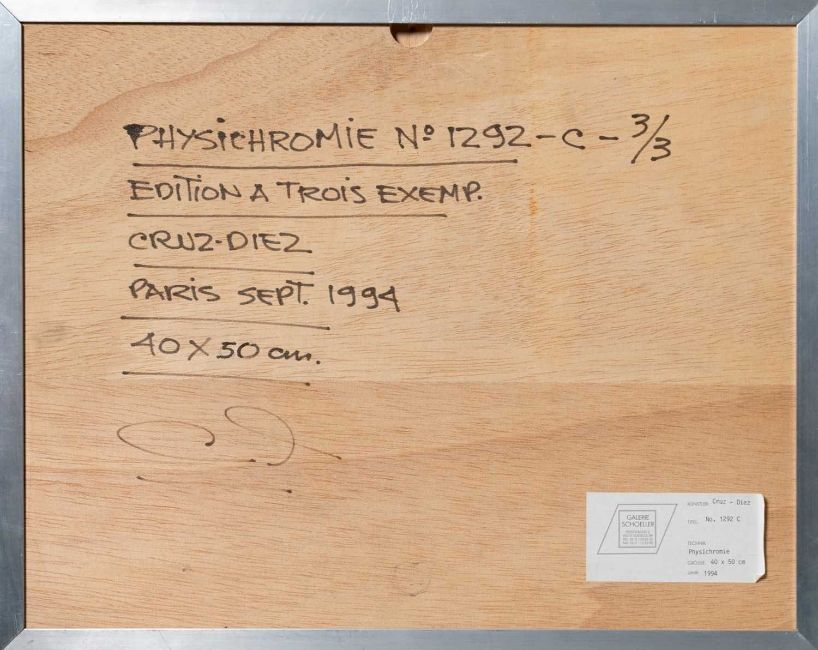 PHYSICHROMIE Nº 1292 - C - 3/3
EDITION A TROIS EXEMP.
CRUZ-DIEZ
PARIS SEPT. 1994
40 X 50 cm.
GALERIE
SCHOELLER
KÜNSTLER Cruz - Diez
TITEL No. 1292 C
TECHNIK
Physichromie
GRÖSSE 40 x 50 cm
JAHR 1994